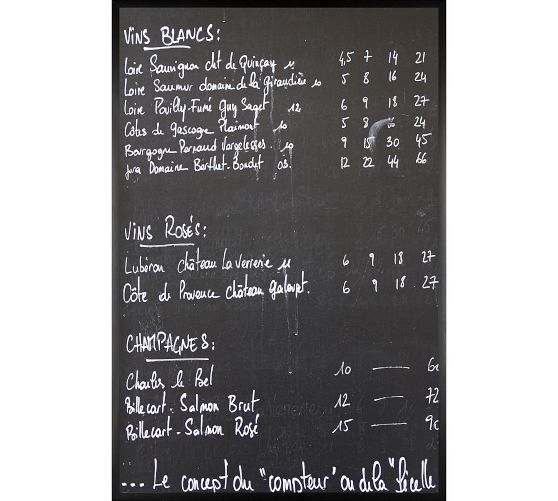 VINS BLANCS:
Loire Sauvignon cht de Quinçay 11 4,5 7 14 21
Loire Saumur domaine de la giraudière 10 5 8 16 24
Loire Pouilly-Fumé Guy Saget 12 6 9 18 27
Côtes de gascogne Plaimont 10 5 8 24
Bourgogne Pernand Vergelesses. 10 9 15 30 45
Jura Domaine Berthet-Bondet 03. 12 22 44 66
VINS ROSÉS:
Lubéron château La verrerie 11 6 9 18 27
Côte de Provence château 6 9 18 27
CHAMPAGNES:
Charles le Bel 10 — 60
Billecart-Salmon Brut 12 — 72
Billecart-Salmon Rosé 15 — 90
... Le concept du "compteur" ou de la "ficelle